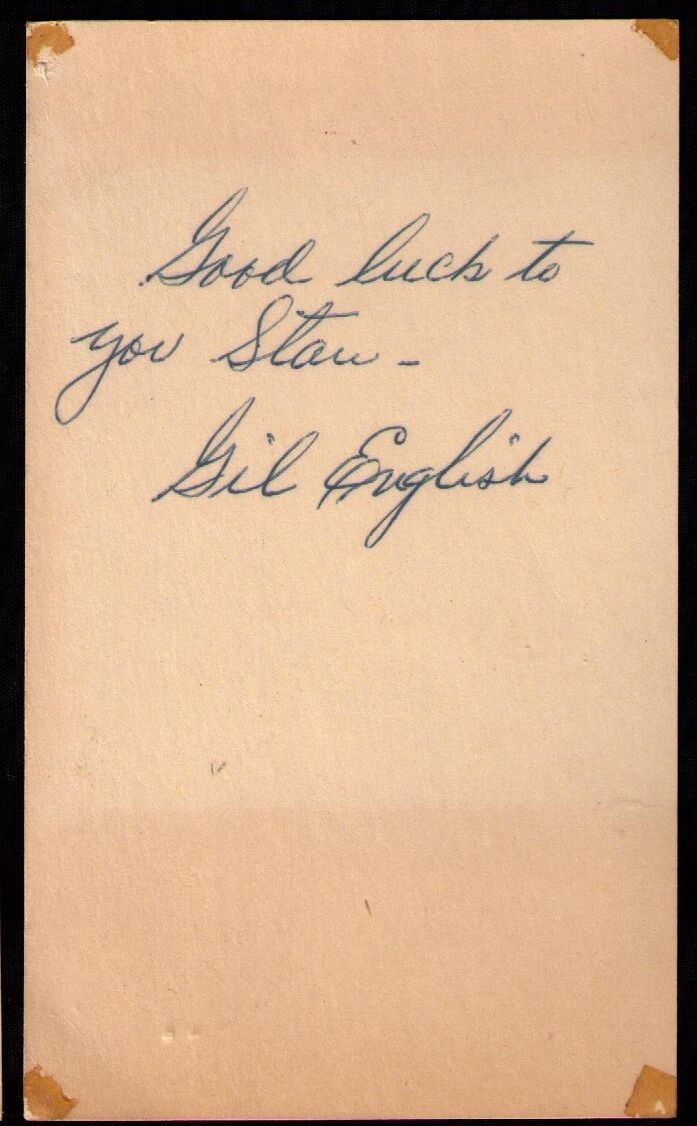 Good luck to
you Stan -
Gil English